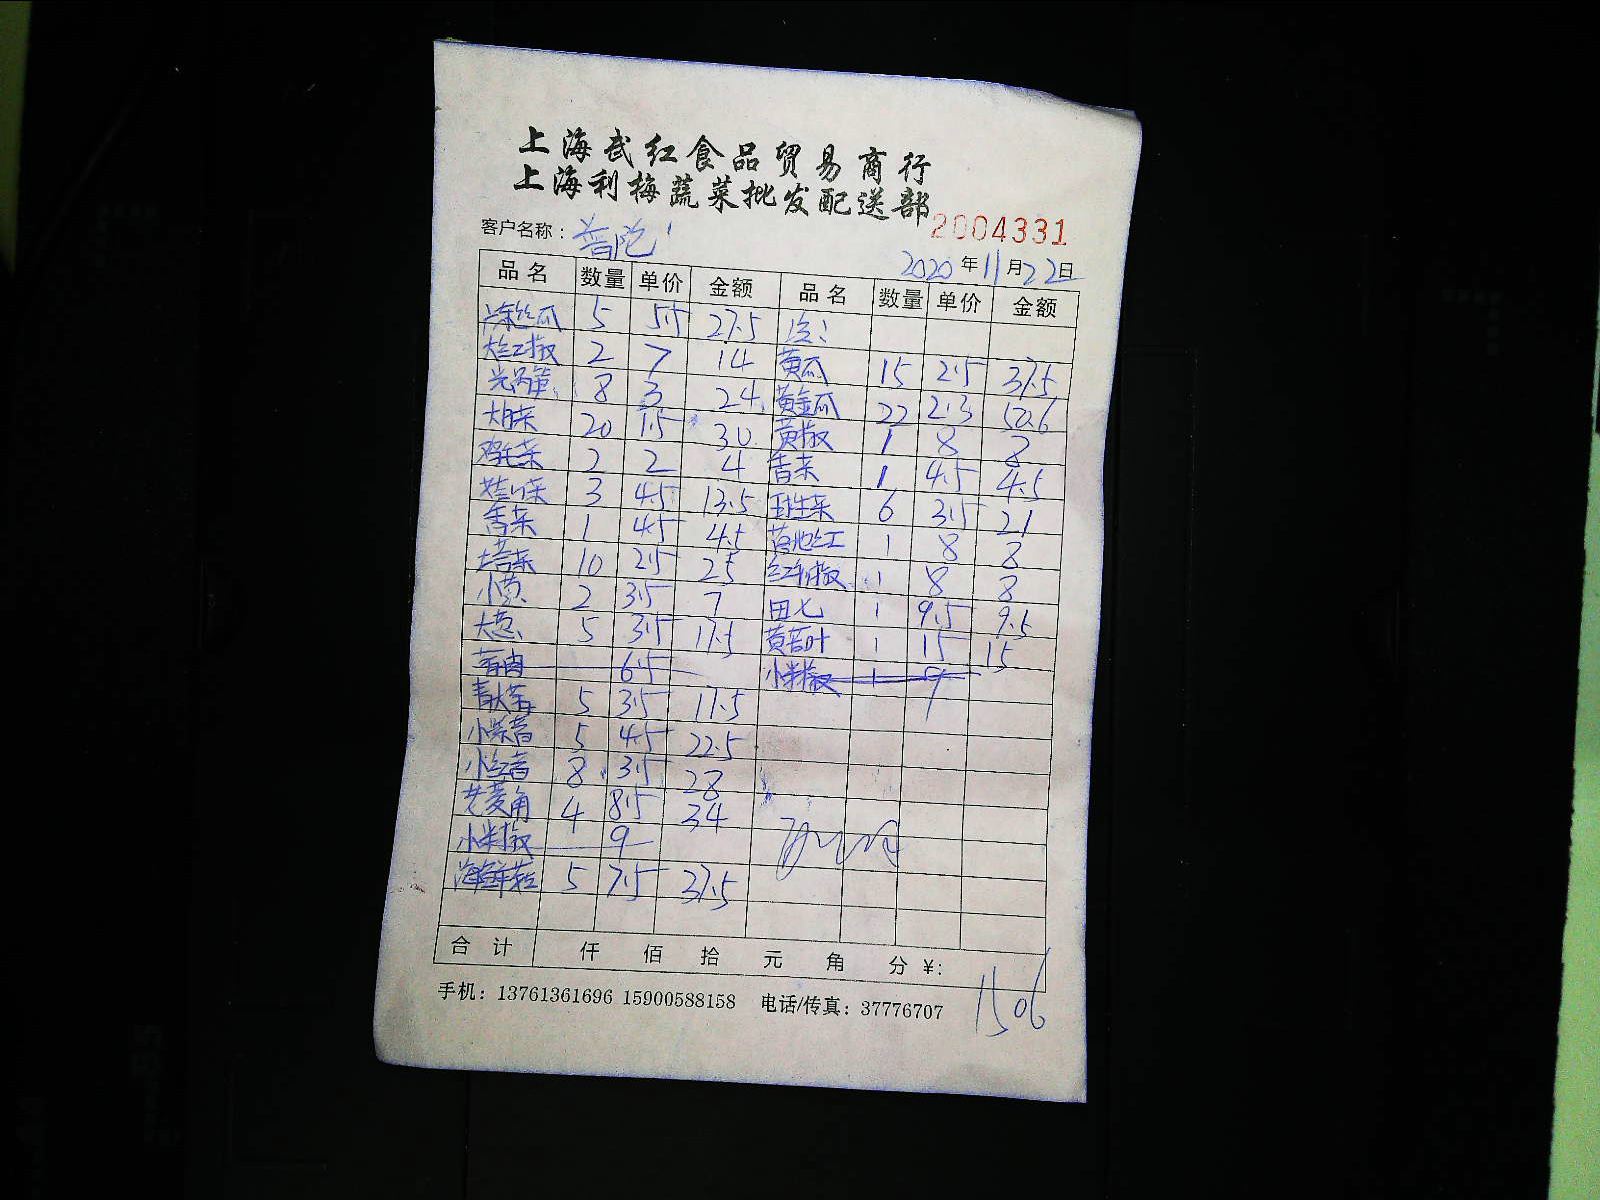 上海武红食品贸易商行
上海利梅蔬菜批发配送部
2004331
客户名称：普陀
2020年11月22日
品名 数量 单价 金额 品名 数量 单价 金额
丝瓜 5 5.5 27.5
大红椒 2 7 14 黄瓜 15 2.5 37.5
光莴笋 8 3 24 黄金瓜 22 2.3 50.6
大白菜 20 1.5 30 黄椒 1 8 8
鸡毛菜 2 2 4 香菜 1 4.5 4.5
3 4.5 13.5 生菜 6 3.5 21
香菜 1 4.5 4.5 落地红 1 8 8
塔菜 10 2.5 25 红椒 1 8 8
小葱 2 3.5 7 田七 1 9.5 9.5
大葱 5 3.5 17.5 黄苦叶 1 15 15
6.5 小米椒 1 9
5 3.5 17.5
小紫 5 4.5 22.5
小红 8 3.5 28
老菱角 4 8.5 34
小米椒 9
海鲜菇 5 7.5 37.5
合计 仟 佰 拾 元 角 分 ¥:
1506
手机：13761361696 15900588158 电话/传真：37776707